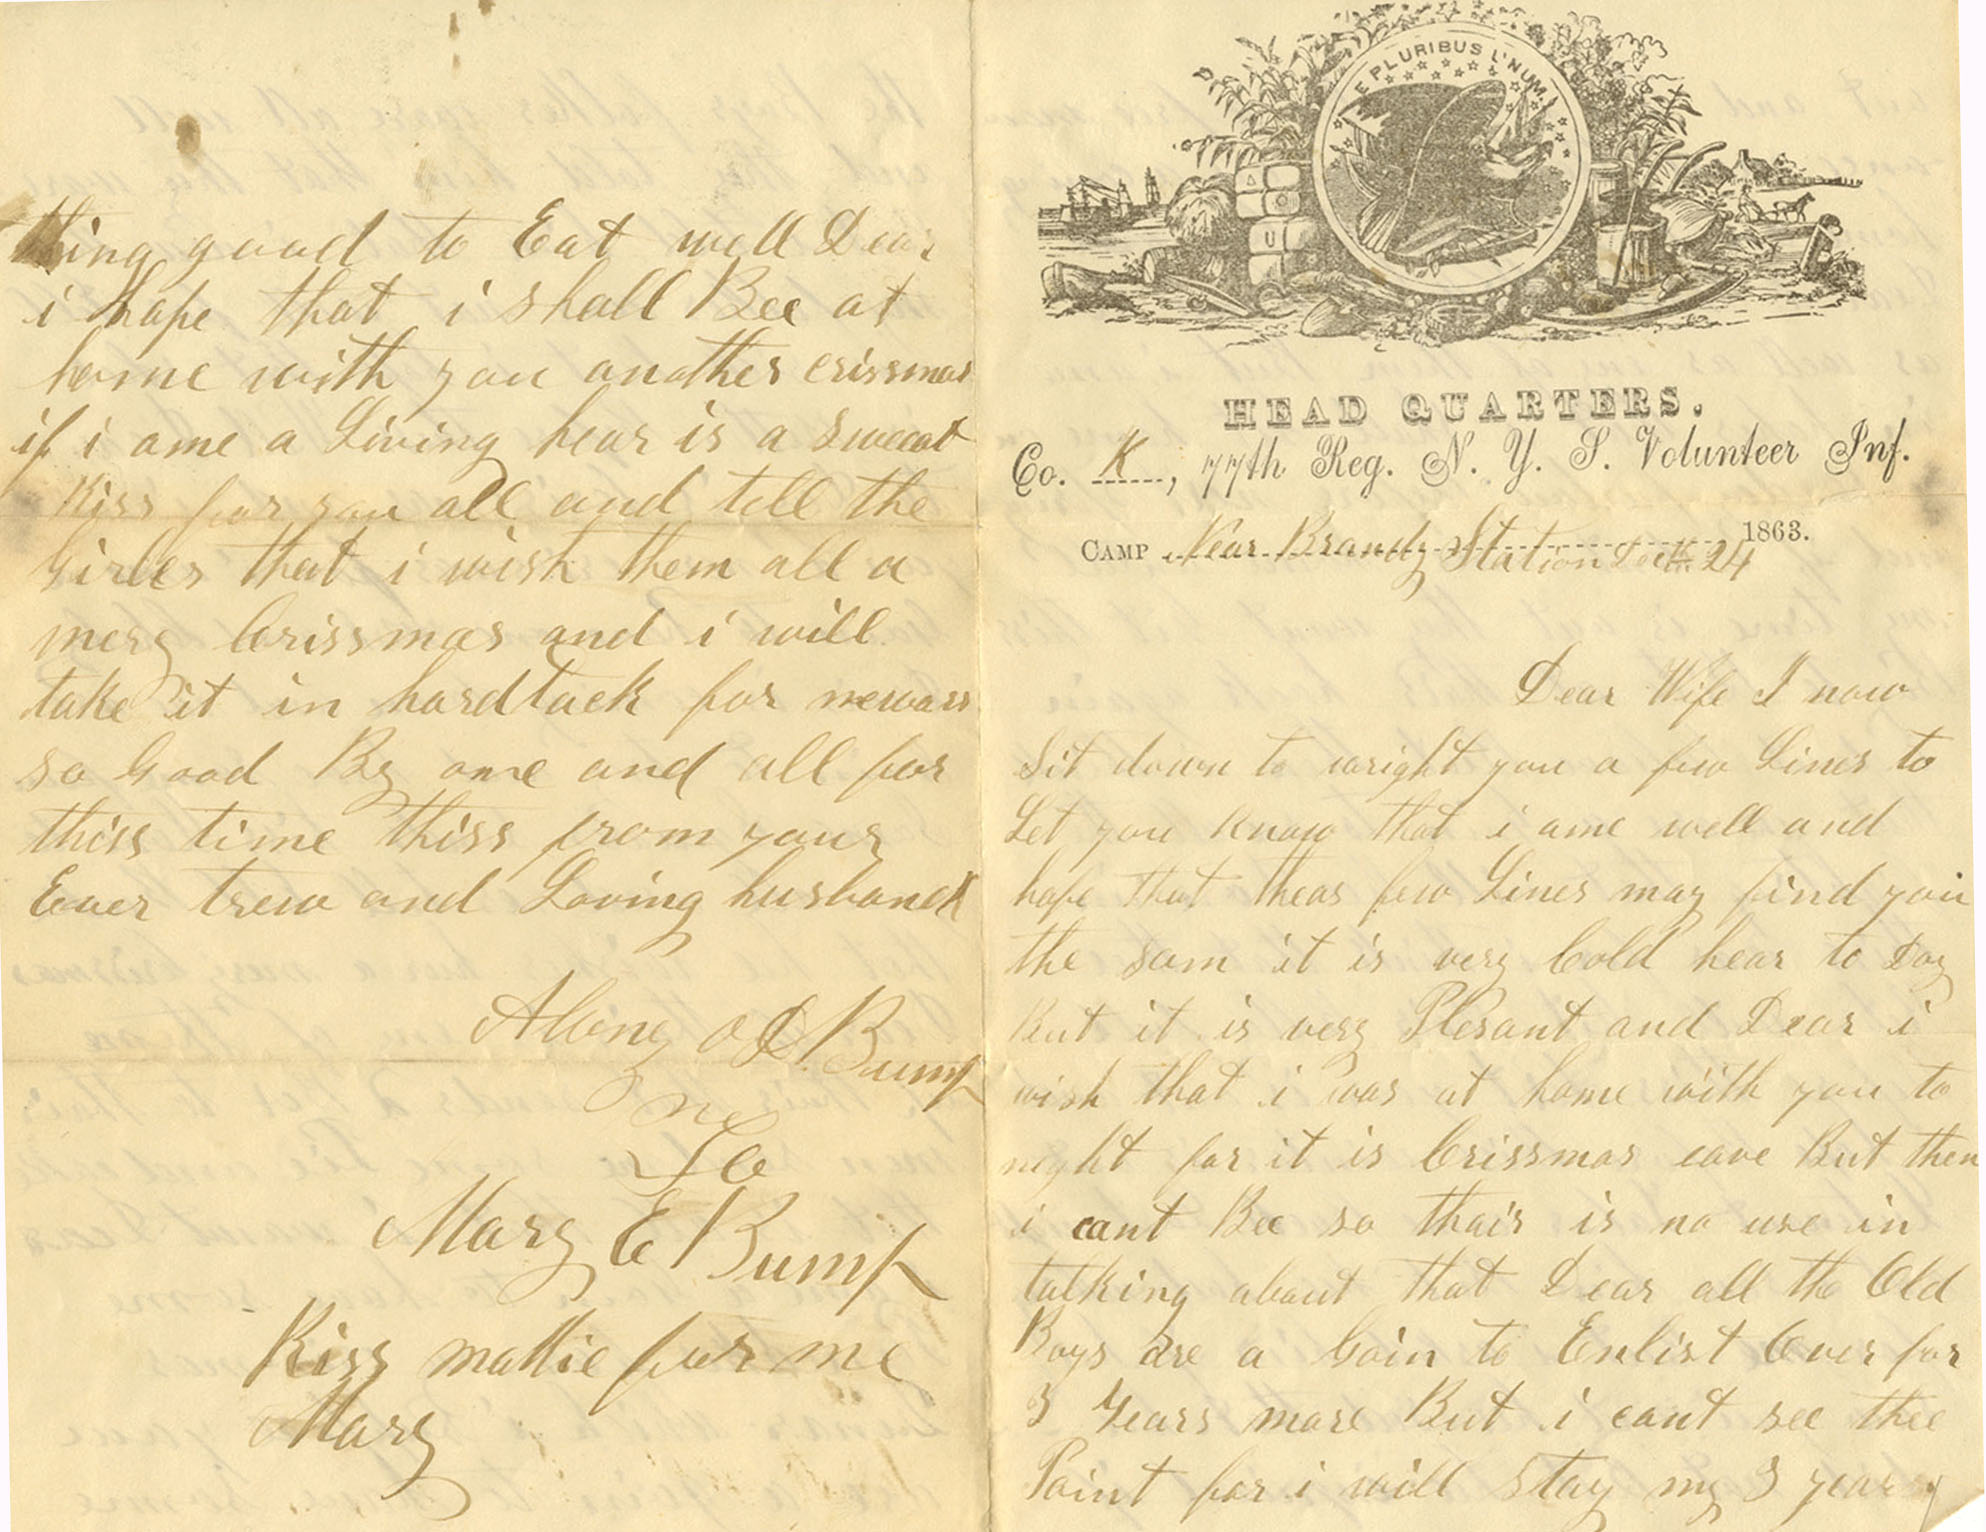 E PLURIBUS UNUM.
HEAD QUARTERS.
Co. K, 77th Reg. N. Y. S. Volunteer Inf.
CAMP Near Brandy Station Dec th 24 1863.
Dear Wife I now
Sit down to wright you a few Lines to
Let you know that i ame well and
hope that theas few Lines may find you
the sam it is very Cold hear to Day
But it is very Plesant and Dear i
wish that i was at home with you to
night for it is Crissmas eave But then
i cant Bee so thair is no use in
talking about that Dear all the Old
Boys are a Goin to Enlist Over for
3 Years more But i cant see thee
Point for i will Stay my 3 years
thing good to Eat well Dear
i hope that i shall Bee at
home with you another crissmas
if i ame a Living hear is a sweeat
Kiss for you all and tell the
Girles that i wish them all a
mery Crissmas and i will
take it in hardtack for
so Good By one and all for
thiss time thiss from your
Ever trew and Loving husband
Alonzo D Bump
To
Mary E Bump
Kiss mattie for me
Mary